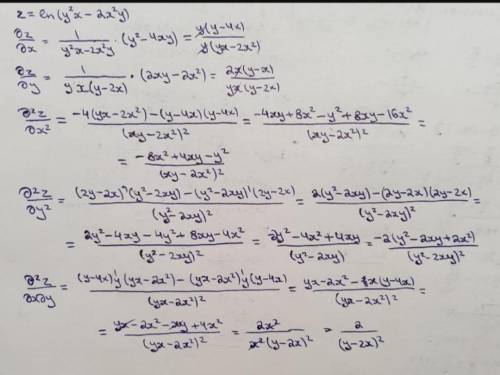 z = ln(y²x - 2x²y)
∂z/∂x = 1/(y²x-2x²y) · (y²-4xy) = y(y-4x)/(y(yx-2x²))
∂z/∂y = 1/(yx(y-2x)) · (2xy-2x²) = 2x(y-x)/(yx(y-2x))
∂²z/∂x² = (-4(yx-2x²)-(y-4x)(y-4x))/(xy-2x²)² = (-4xy+8x²-y²+8xy-16x²)/(xy-2x²)² =
= (-8x²+4xy-y²)/(xy-2x²)²
∂²z/∂y² = ((2y-2x)'(y²-2xy)-(y²-2xy)'(2y-2x))/(y²-2xy)² = (2(y²-2xy)-(2y-2x)(2y-2x))/(y²-2xy)² =
= (2y²-4xy-4y²+8xy-4x²)/(y²-2xy)² = (-2y²-4x²+4xy)/(y²-2xy) = -2(y²-2xy+2x²)/(y²-2xy)²
∂²z/∂x∂y = ((y-4x)'y(yx-2x²)-(yx-2x²)'y(y-4x))/(yx-2x²)² = (yx-2x²-x(y-4x))/(yx-2x²)² =
= (yx-2x²-xy+4x²)/(yx-2x²)² = 2x²/(x²(y-2x)²) = 2/(y-2x)²